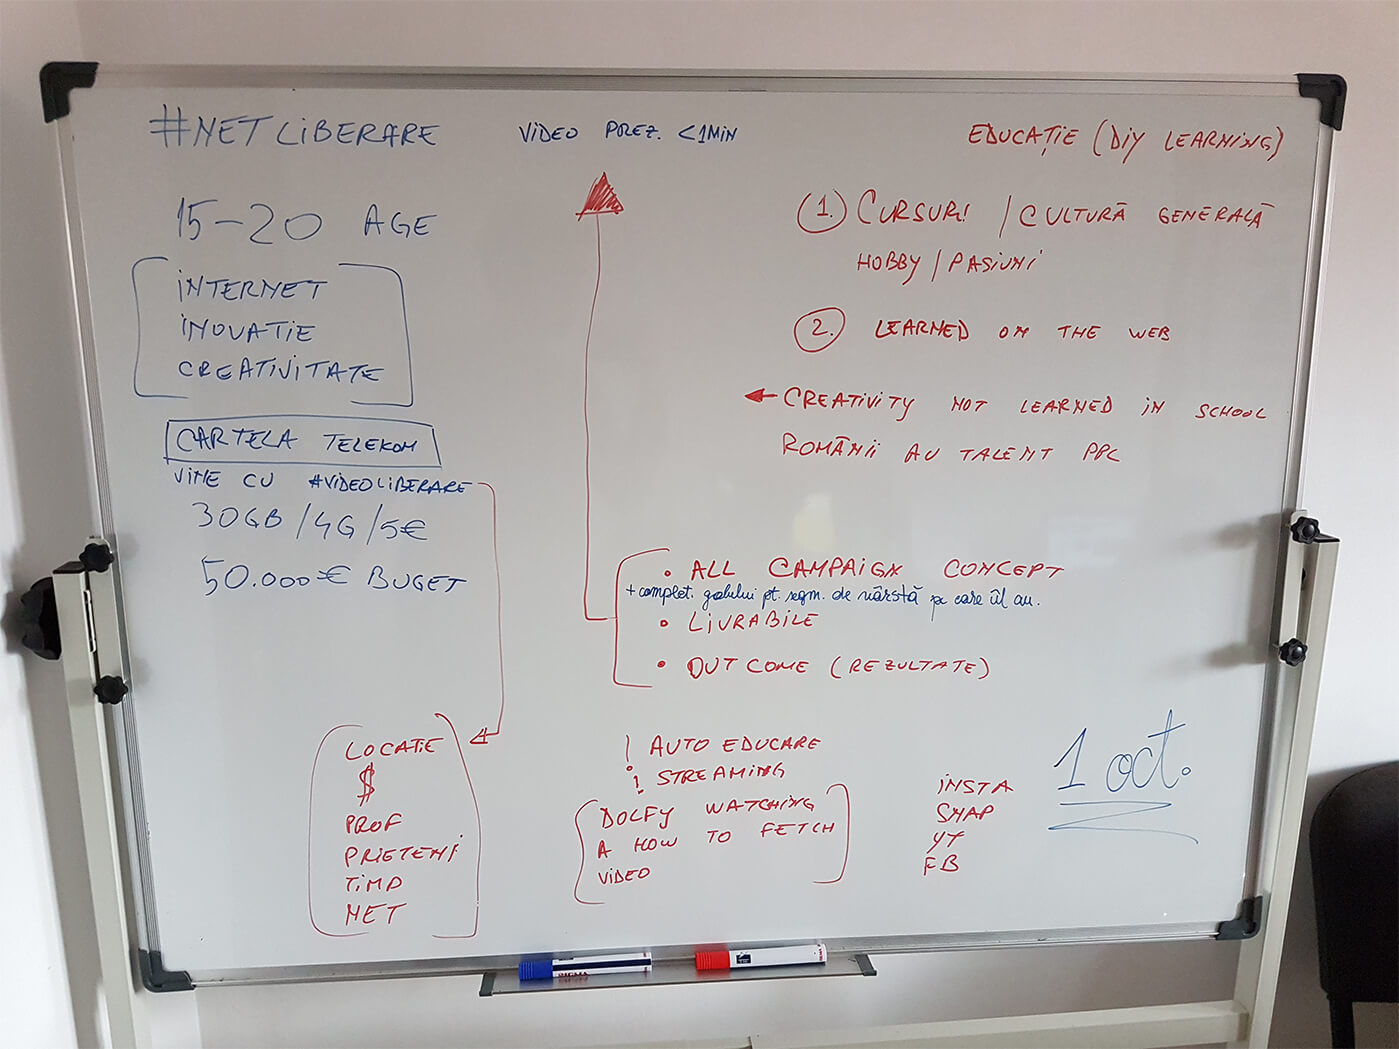 #NETLIBERARE
15-20 AGE
INTERNET
INOVATIE
CREATIVITATE
CARTELA TELEKOM
VINE CU #VIDEOLIBERARE
30GB/4G/5€
50.000€ BUGET
LOCATIE
$
PROF
PRIETENI
TIMP
NET
VIDEO PREZ. <1MIN
• ALL CAMPAIGN CONCEPT
+ complet. golului pt. segm. de vârstă pe care îl au.
• LIVRABILE
• OUTCOME (REZULTATE)
! AUTO EDUCARE
! STREAMING
DOLFY WATCHING
A HOW TO FETCH
VIDEO
EDUCAȚIE (DIY LEARNING)
1. CURSURI / CULTURĂ GENERALĂ
HOBBY / PASIUNI
2. LEARNED ON THE WEB
CREATIVITY NOT LEARNED IN SCHOOL
ROMÂNII AU TALENT PPC
INSTA
SNAP
YT
FB
1 oct.
SIGMA